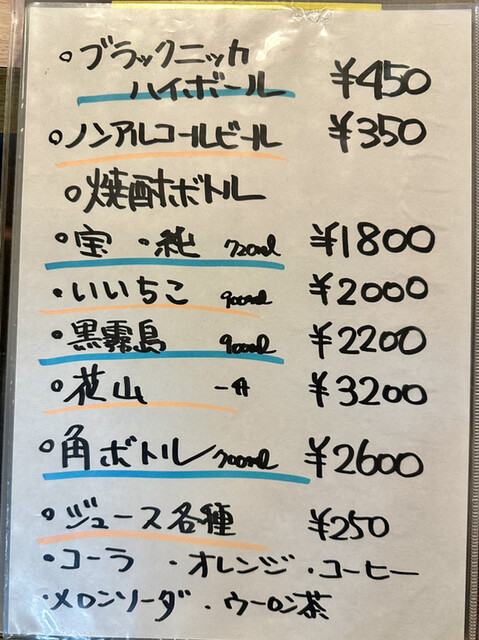 。ブラックニッカ
ハイボール ¥450
。ノンアルコールビール ¥350
。焼酎ボトル
。宝・純 720ml ¥1800
・いいちこ 900ml ¥2000
・黒霧島 900ml ¥2200
・花山 一升 ¥3200
。角ボトル 700ml ¥2600
。ジュース各種 ¥250
・コーラ ・オレンジ ・コーヒー
・メロンソーダ ・ウーロン茶